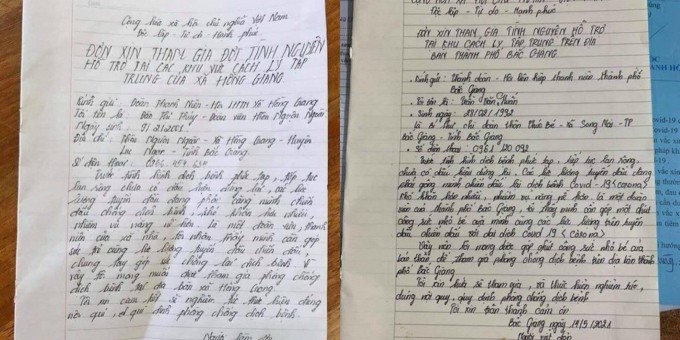 Cộng hòa xã hội chủ nghĩa Việt Nam
Độc lập - Tự do - Hạnh phúc
ĐƠN XIN THAM GIA ĐỘI TÌNH NGUYỆN
HỖ TRỢ TẠI CÁC KHU VỰC CÁCH LY TẬP
TRUNG CỦA XÃ HỒNG GIANG
Kính gửi: Đoàn Thanh Niên - Hội LHTN Xã Hồng Giang
Tôi tên là: Thủy - Đoàn viên Thôn Ngươn Nguộn
Ngày sinh:
Địa chỉ: Thôn - Xã Hồng Giang - Huyện
Lục Ngạn - Tỉnh Bắc Giang.
Số điện thoại:
Trước tình hình dịch bệnh phức tạp, tiếp tục
lan rộng chưa có dấu hiệu dừng lại, các lực
lượng tuyến đầu đang phải căng mình chiến
đấu chống dịch bệnh, khó khăn nhiều,
nhiệm vụ nặng nề hơn, là một đoàn viên thanh
niên của xã nhà, tôi nhận thấy mình cần góp
sức trẻ cùng các lực lượng tuyến đầu,
chung tay góp sức chống lại dịch bệnh. Vì
vậy tôi mong muốn được tham gia phòng chống
dịch bệnh tại địa bàn xã Hồng Giang.
Tôi xin cam kết sẽ nghiêm túc thực hiện đúng
nội quy, quy định phòng chống dịch bệnh.
Người làm đơn
Độc lập - Tự do - Hạnh phúc
ĐƠN XIN THAM GIA TÌNH NGUYỆN HỖ TRỢ
TẠI KHU CÁCH LY TẬP TRUNG TRÊN ĐỊA
BÀN THÀNH PHỐ BẮC GIANG
Kính gửi: Thành đoàn - Hội liên hiệp thanh niên thành phố
Bắc Giang
Tôi tên là: Trần Văn Tuấn
Sinh ngày: 28/02/1992
Là Bí thư chi đoàn thôn - Xã Song Mai - TP
Bắc Giang - Tỉnh Bắc Giang
Số điện thoại: 0961 120 092
Trước tình hình dịch bệnh phức tạp, tiếp tục lan rộng,
chưa có dấu hiệu dừng lại, các lực lượng tuyến đầu đang
phải gồng mình chiến đấu lại dịch bệnh Covid-19 (corona)
khó khăn hơn nhiều, nhiệm vụ nặng nề hơn, là một đoàn
viên của thành phố Bắc Giang, tôi thấy mình cần góp một chút
công sức nhỏ bé của mình cùng các lực lượng trên tuyến
đầu chiến đấu với đại dịch Covid 19 (corona)
Vậy nên tôi mong được góp chút công sức nhỏ bé của
bản thân, để tham gia phòng chống dịch bệnh trên địa bàn thành
phố Bắc Giang
Tôi xin hứa sẽ tham gia, và thực hiện nghiêm túc,
đúng nội quy, quy định phòng chống dịch bệnh
Tôi xin chân thành cảm ơn
Bắc Giang, ngày 19/5/2021
Người viết đơn